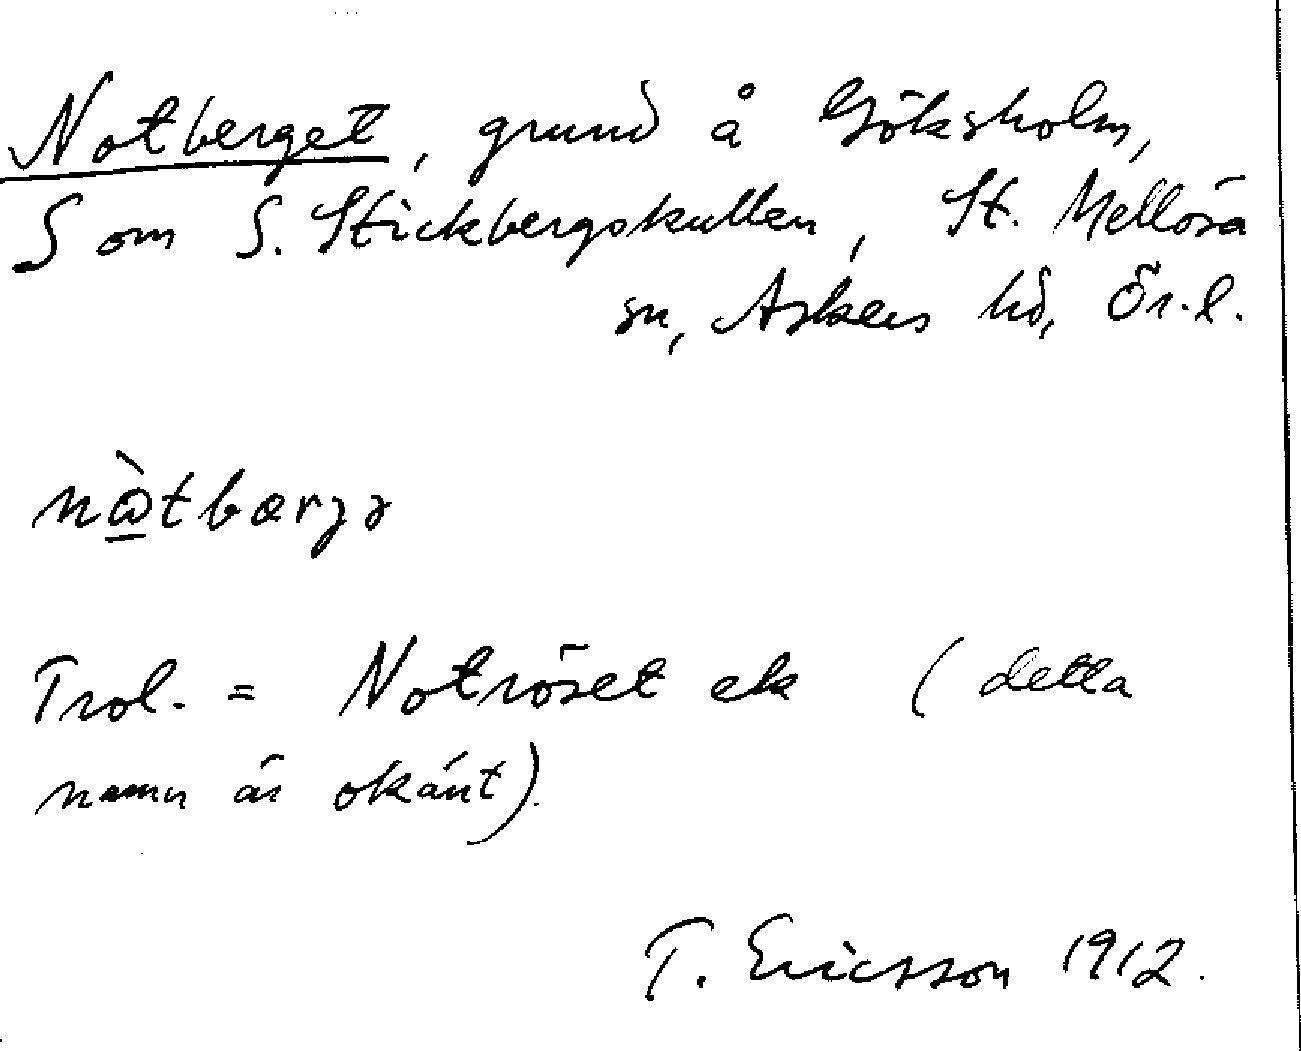 Notberget, grund å Göksholm,
S om S. Stickbergskullen, St. Mellösa
sn, Askers hd, Ör.l.
nὼtbærjə
Trol. = Notröset ek (detta
namn är okänt).
T. Ericsson 1912.